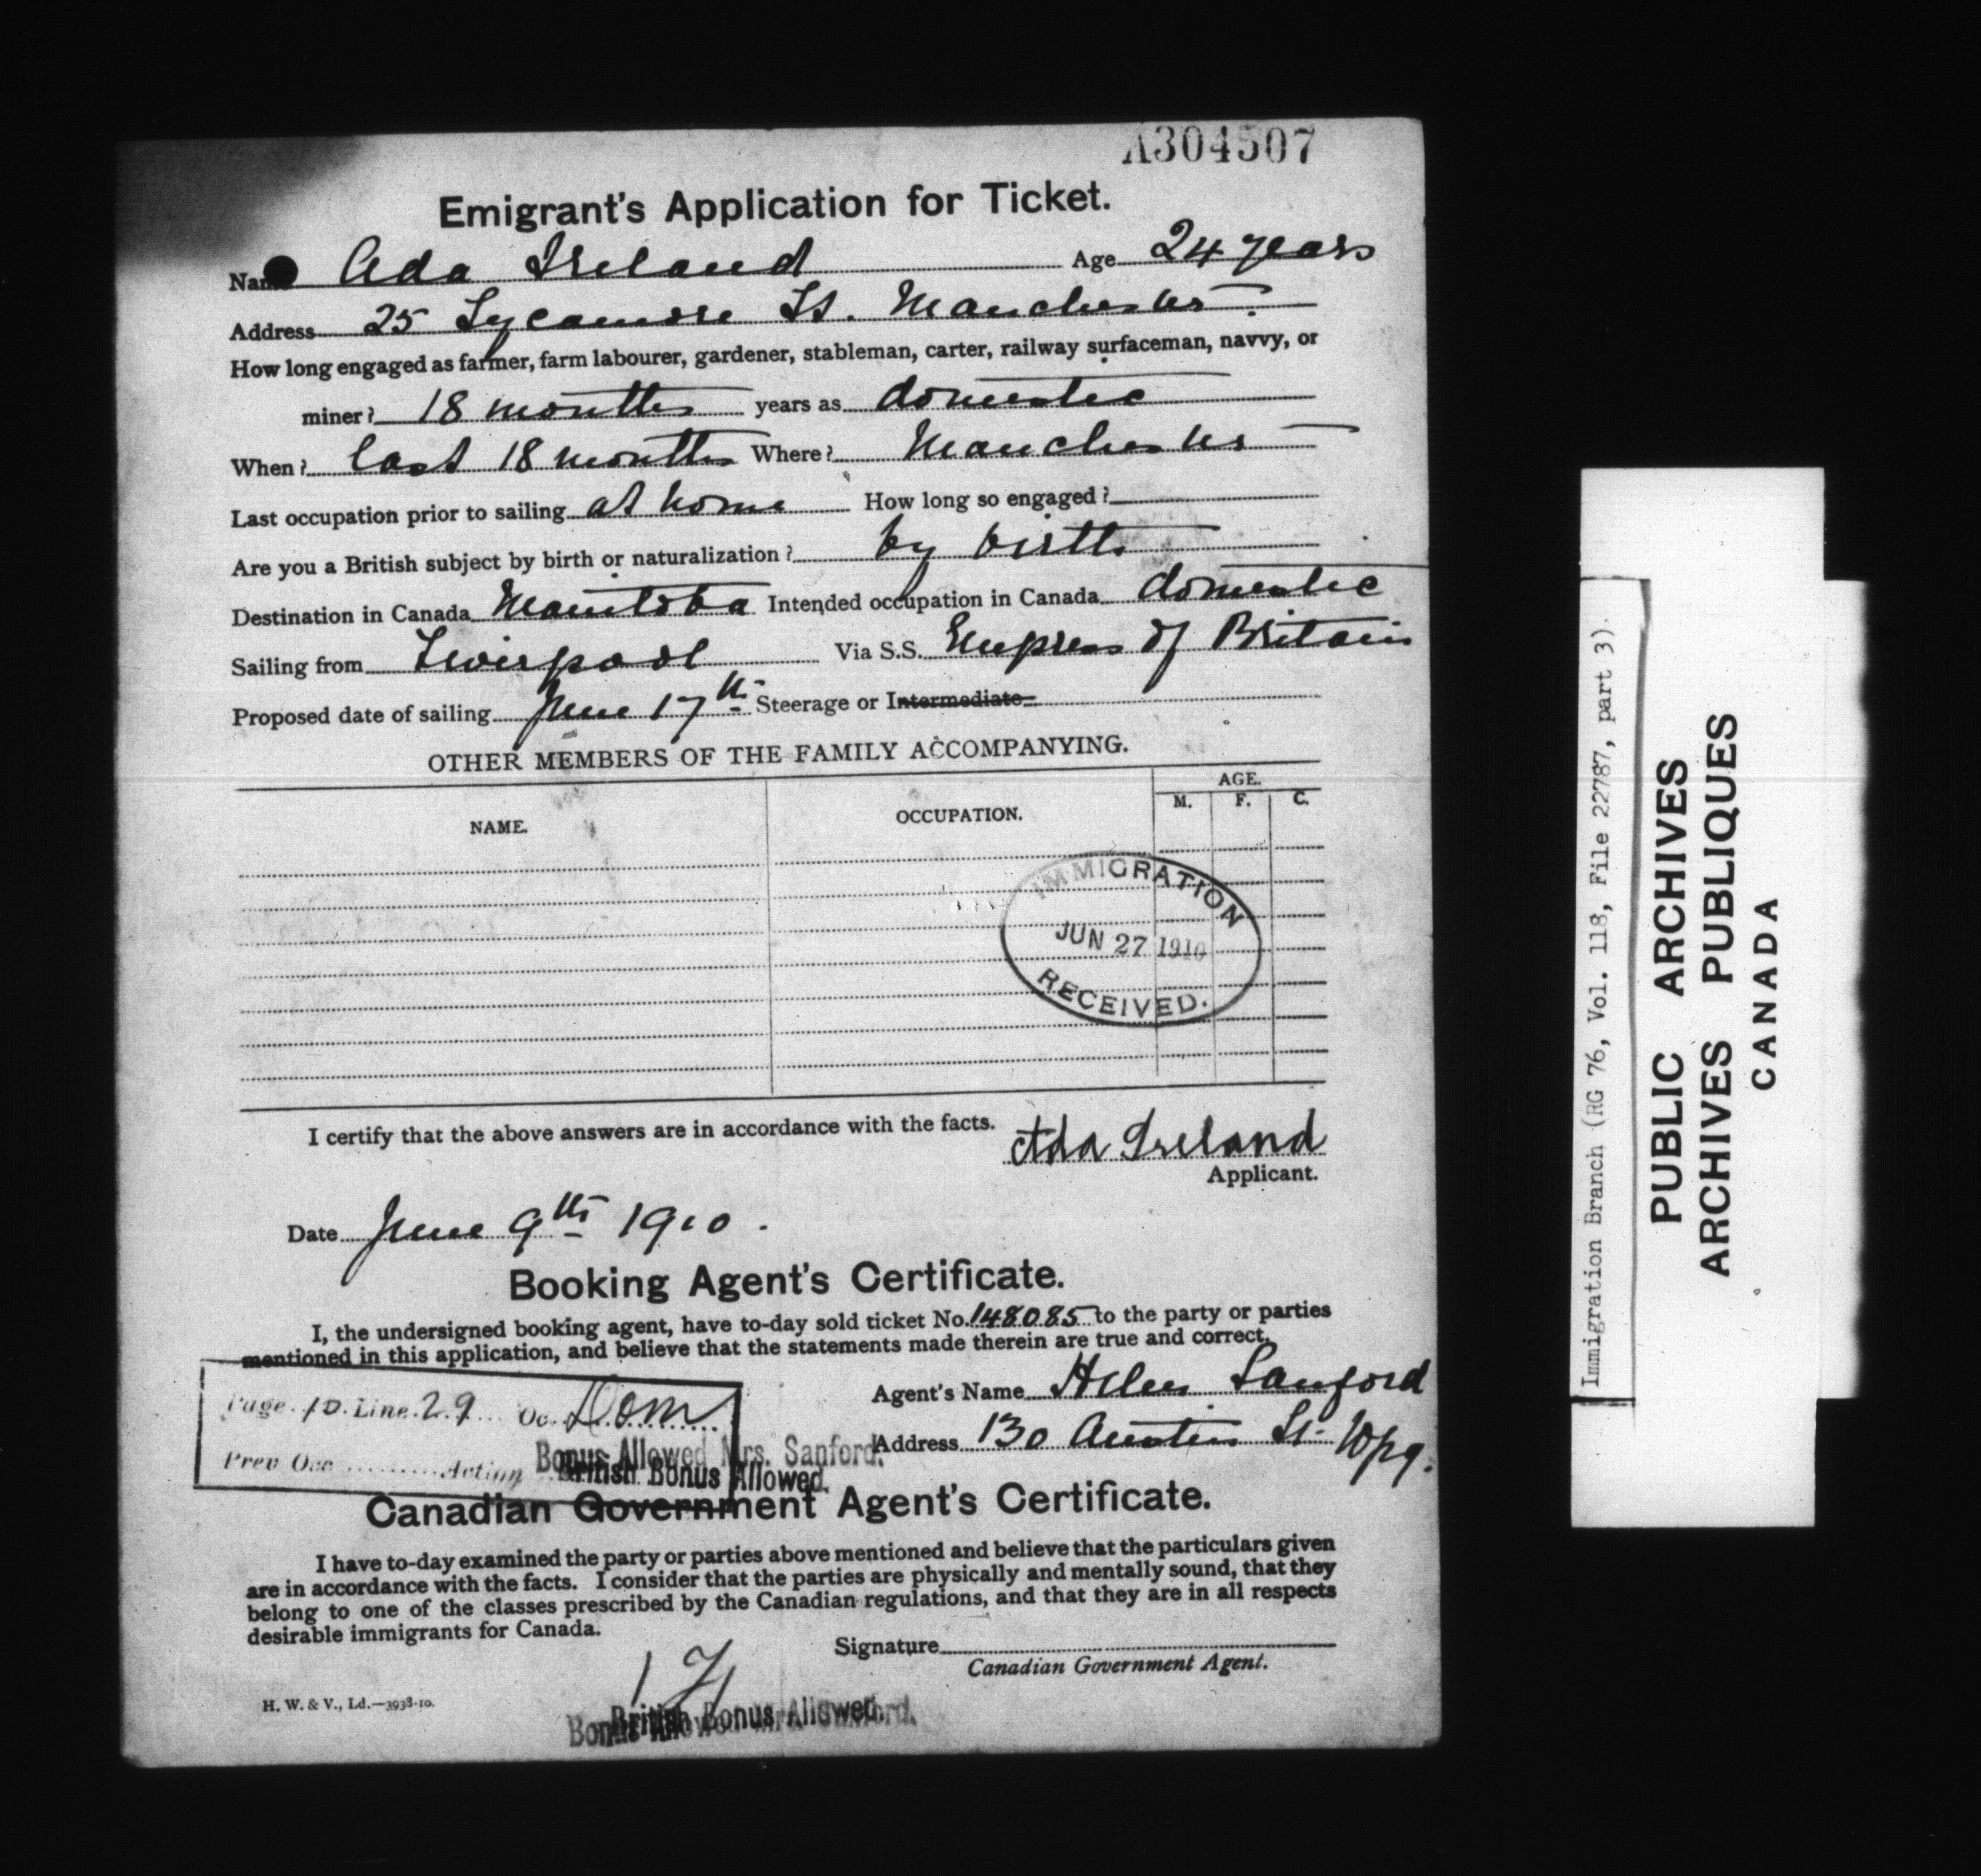 A304507
Emigrant's Application for Ticket.
Name Ada Ireland Age 24 years
Address 25 Sycamore St. Manchester.
How long engaged as farmer, farm labourer, gardener, stableman, carter, railway surfaceman, navvy, or
miner? 18 months years as domestic
When? last 18 months Where? Manchester
Last occupation prior to sailing at home How long so engaged?
Are you a British subject by birth or naturalization? by birth
Destination in Canada Manitoba Intended occupation in Canada domestic
Sailing from Liverpool Via S.S. Empress of Britain
Proposed date of sailing June 17th Steerage or Intermediate
OTHER MEMBERS OF THE FAMILY ACCOMPANYING.
NAME. OCCUPATION. AGE.
M. F. C.
IMMIGRATION
JUN 27 1910
RECEIVED.
I certify that the above answers are in accordance with the facts. Ada Ireland
Applicant.
Date June 9th 1910.
Booking Agent's Certificate.
I, the undersigned booking agent, have to-day sold ticket No. 148085 to the party or parties
mentioned in this application, and believe that the statements made therein are true and correct.
Agent's Name Helen Sanford
Page 10 Line 29 Oc. Dom
Address 130 Austin St. Wpg.
Prev Occ Action
Bonus Allowed Mrs. Sanford.
British Bonus Allowed.
Canadian Government Agent's Certificate.
I have to-day examined the party or parties above mentioned and believe that the particulars given
are in accordance with the facts. I consider that the parties are physically and mentally sound, that they
belong to one of the classes prescribed by the Canadian regulations, and that they are in all respects
desirable immigrants for Canada.
Signature
Canadian Government Agent.
H. W. & V., Ld.—3938-10.
British Bonus Allowed.
Bonus Allowed Mrs. Sanford.
Immigration Branch (RG 76, Vol. 118, File 22787, part 3).
PUBLIC ARCHIVES
ARCHIVES PUBLIQUES
CANADA